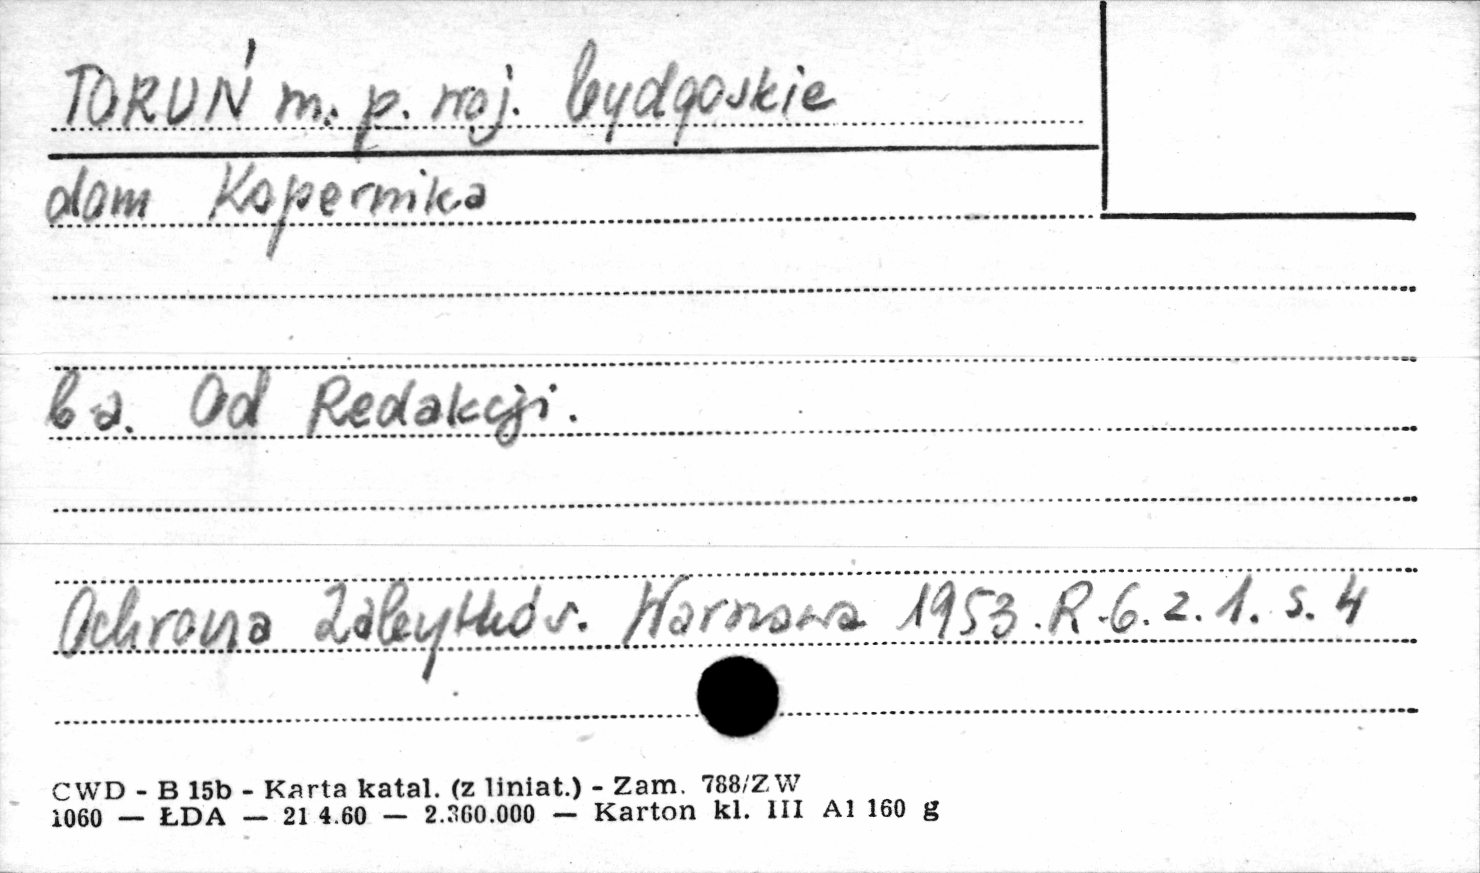 TORUŃ m. p. woj. bydgoskie
dom Kopernika
b a. Od Redakcji.
Ochrona Zabytków. Warszawa 1953. R. 6. z. 1. s. 4
CWD - B 15b - Karta katal. (z liniat.) - Zam. 788/ZW
1060 — ŁDA — 21 4.60 — 2.360.000 — Karton kl. III A1 160 g